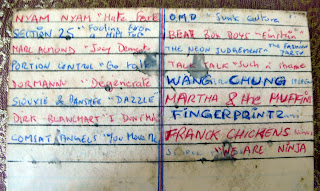 NYAM NYAM "Hate
SECTION 25 "Looking from
MARC ALMOND "Joey Demento
PORTION CONTROL "Go talk
DORMANNU "Degenerate
SIOUXSIE & BANSHEE "DAZZLE"
DIRK BLANCHART "I DON'T
COMSAT ANGELS "YOU MOVE ME
O.M.D Junk Culture
BEAT BOX BOYS "Einstein"
THE NEON JUDGEMENT "THE FASHION PARTY
TALK TALK "Such a shame
WANG CHUNG
MARTHA & the MUFFINS
FINGERPRINTZ
FRANCK CHICKENS
"WE ARE NINJA